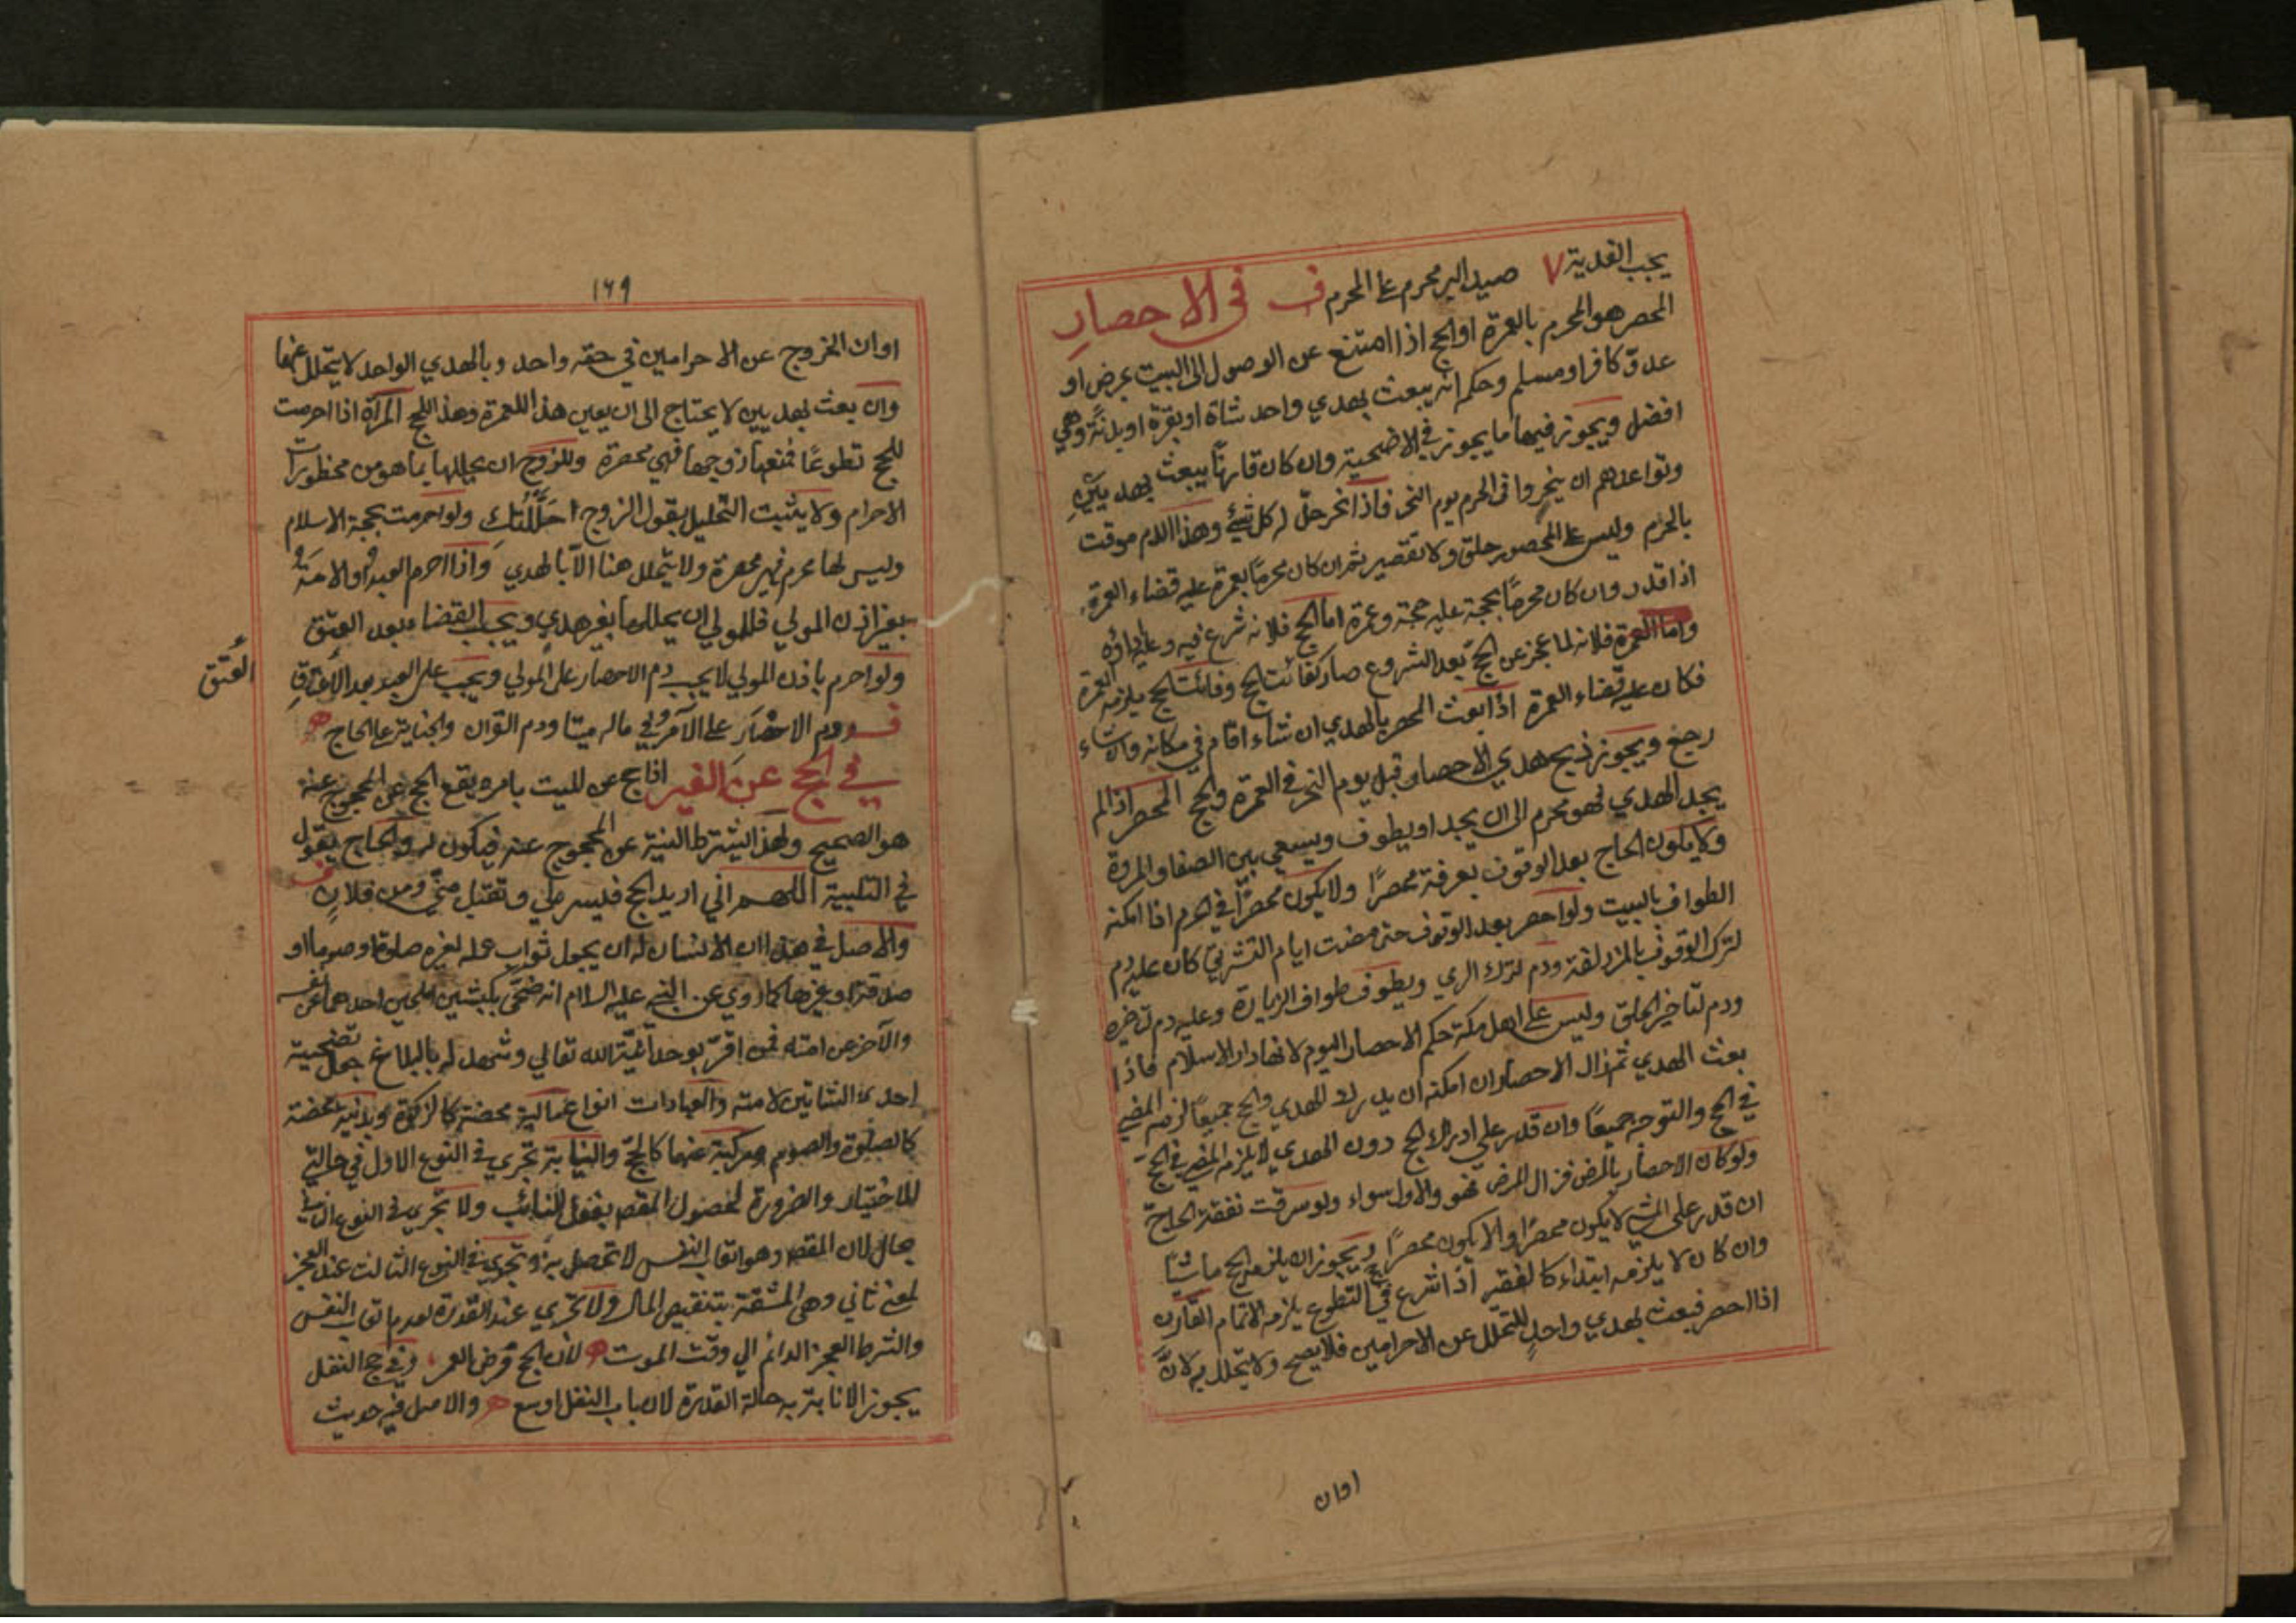 يجب الفدية ٧ صيد البر محرم على المحرم ف في الاحصار
المحصر هو المحرم بالعمرة او الحج اذا امتنع عن الوصول الى البيت بمرض او
عدوّ كافر او مسلم وحكمه انه يبعث بهدي واحد شاة او بقرة او بدنة وهي
افضل ويجوز فيها ما يجوز في الاضحية وان كان قارنًا يبعث بهديين
وتواعدهم ان ينحروا في الحرم يوم النحر فاذا نحر حلّ له كل شيئ وهذا الدم موقت
بالحرم وليس على المحصور حلق ولا تقصير ثم ان كان محرمًا بعمرة عليه قضاء العمرة
اذا قدر وان كان محرمًا بحجة عليه حجة وعمرة اما الحج فلانه شرع فيه وعليه اداؤه
واما العمرة فلانه لما عجز عن الحج بعد الشروع صار كفائت الحج وفائت الحج يلزمه العمرة
فكان عليه قضاء العمرة اذا بعث المحصر بالهدي ان شاء اقام في مكانه وان شاء
رجع ويجوز ذبح هدي الاحصار قبل يوم النحر في العمرة والحج المحصر اذا لم
يجد الهدي فهو محرم الى ان يجد او يطوف ويسعي بين الصفا والمروة
ولا يكون الحاج بعد الوقوف بعرفة محصرًا ولا يكون محصرًا في الحرم اذا امكنه
الطواف بالبيت ولو احصر بعد الوقوف حتى مضت ايام التشريق كان عليه دم
لترك الوقوف بالمزدلفة ودم لترك الرمي ويطوف طواف الزيارة وعليه دم لتاخيره
ودم لتاخير الحلق وليس على اهل مكة حكم الاحصار اليوم لانها دار الاسلام فاذا
بعث الهدي ثم زال الاحصار ان امكنه ان يدرك الهدي والحج جميعًا لزمه المضي
في الحج والتوجه جميعًا وان قدر على ادراك الحج دون الهدي لا يلزمه المضي في الحج
ولو كان الاحصار بالمرض فزال المرض فهو والاول سواء ولو سرقت نفقة الحاج
ان قدر على المشي لا يكون محصرًا والا يكون محصرًا ويجوز ان يلزمه الحج ماشيًا
وان كان لا يلزمه ابتداء كالفقير اذا شرع في التطوع يلزمه الاتمام القارن
اذا احصر فبعث بهدي واحد للتحلل عن الاحرامين فلا يصح ولا يتحلل به لانّ
اوان
١٦٩
اوان الخروج عن الاحرامين في حقه واحد وبالهدي الواحد لا يتحلل عنهما
وان بعث بهديين لا يحتاج الى ان يعين هذا للعمرة وهذا للحج المرأة اذا احرمت
للحج تطوعًا فمنعها زوجها فهي محصرة وللزوج ان يحللها بما هو من محظورات
الاحرام ولا يثبت التحليل بقول الزوج احَلَّلْتُكِ ولو احرمت بحجة الاسلام
وليس لها محرم فهي محصرة ولا يتحلل هنا الّا بالهدي واذا احرم العبد او الامة
بغير اذن المولي فللمولي ان يحللهما بغير هدي ويجب القضاء بعد العتق
ولو احرم باذن المولي لا يجب دم الاحصار على المولي ويجب على العبد بعد الاعتاق
العُتق
ف ودم الاحصار على الآمر وفي ماله ميتا ودم القران والجناية على الحاج ه
في الحج عن الغير اذا حج عن الميت بامره يقع الحج عن المحجوج عنه
هو الصحيح ولهذا يشترط النية عن المحجوج عنه فيكون له والحاج يقول
ف في التلبية اللهم اني اريد الحج فيسر لي وتقبل منّي ومن فلان
والاصل في هذا ان الانسان له ان يجعل ثواب عمله لغيره صلوة او صوما او
صدقة او غيرها كما روي عن النبي عليه السلام انه ضحّى بكبشين املحين احدهما عن نفسه
والآخر عن امته فمن اقرّ بوحدانيّة الله تعالي وشهد له بالبلاغ جعل تضحية
احدى الشاتين لامته والعبادات انواع مالية محضة كالزكوة وبدنية محضة
كالصلوة والصوم ومركبة منهما كالحجّ والنيابة تجري في النوع الاول في حالتي
الاختيار والضرورة لحصول المقصد بفعل النائب ولا تجري في النوع الثاني
بحال لان المقصد وهو اتعاب النفس لا تحصل به وتجري في النوع الثالث عند العجز
لمعنى ثاني وهي المشقة بتنقيص المال ولا تجري عند القدرة لعدم اتعاب النفس
والشرط العجز الدائم الي وقت الموت ه لأن الحج فرض العمر ، وفي حج النفل
يجوز الانابة به حالة القدرة لان باب النفل اوسع ه والاصل فيه حديث